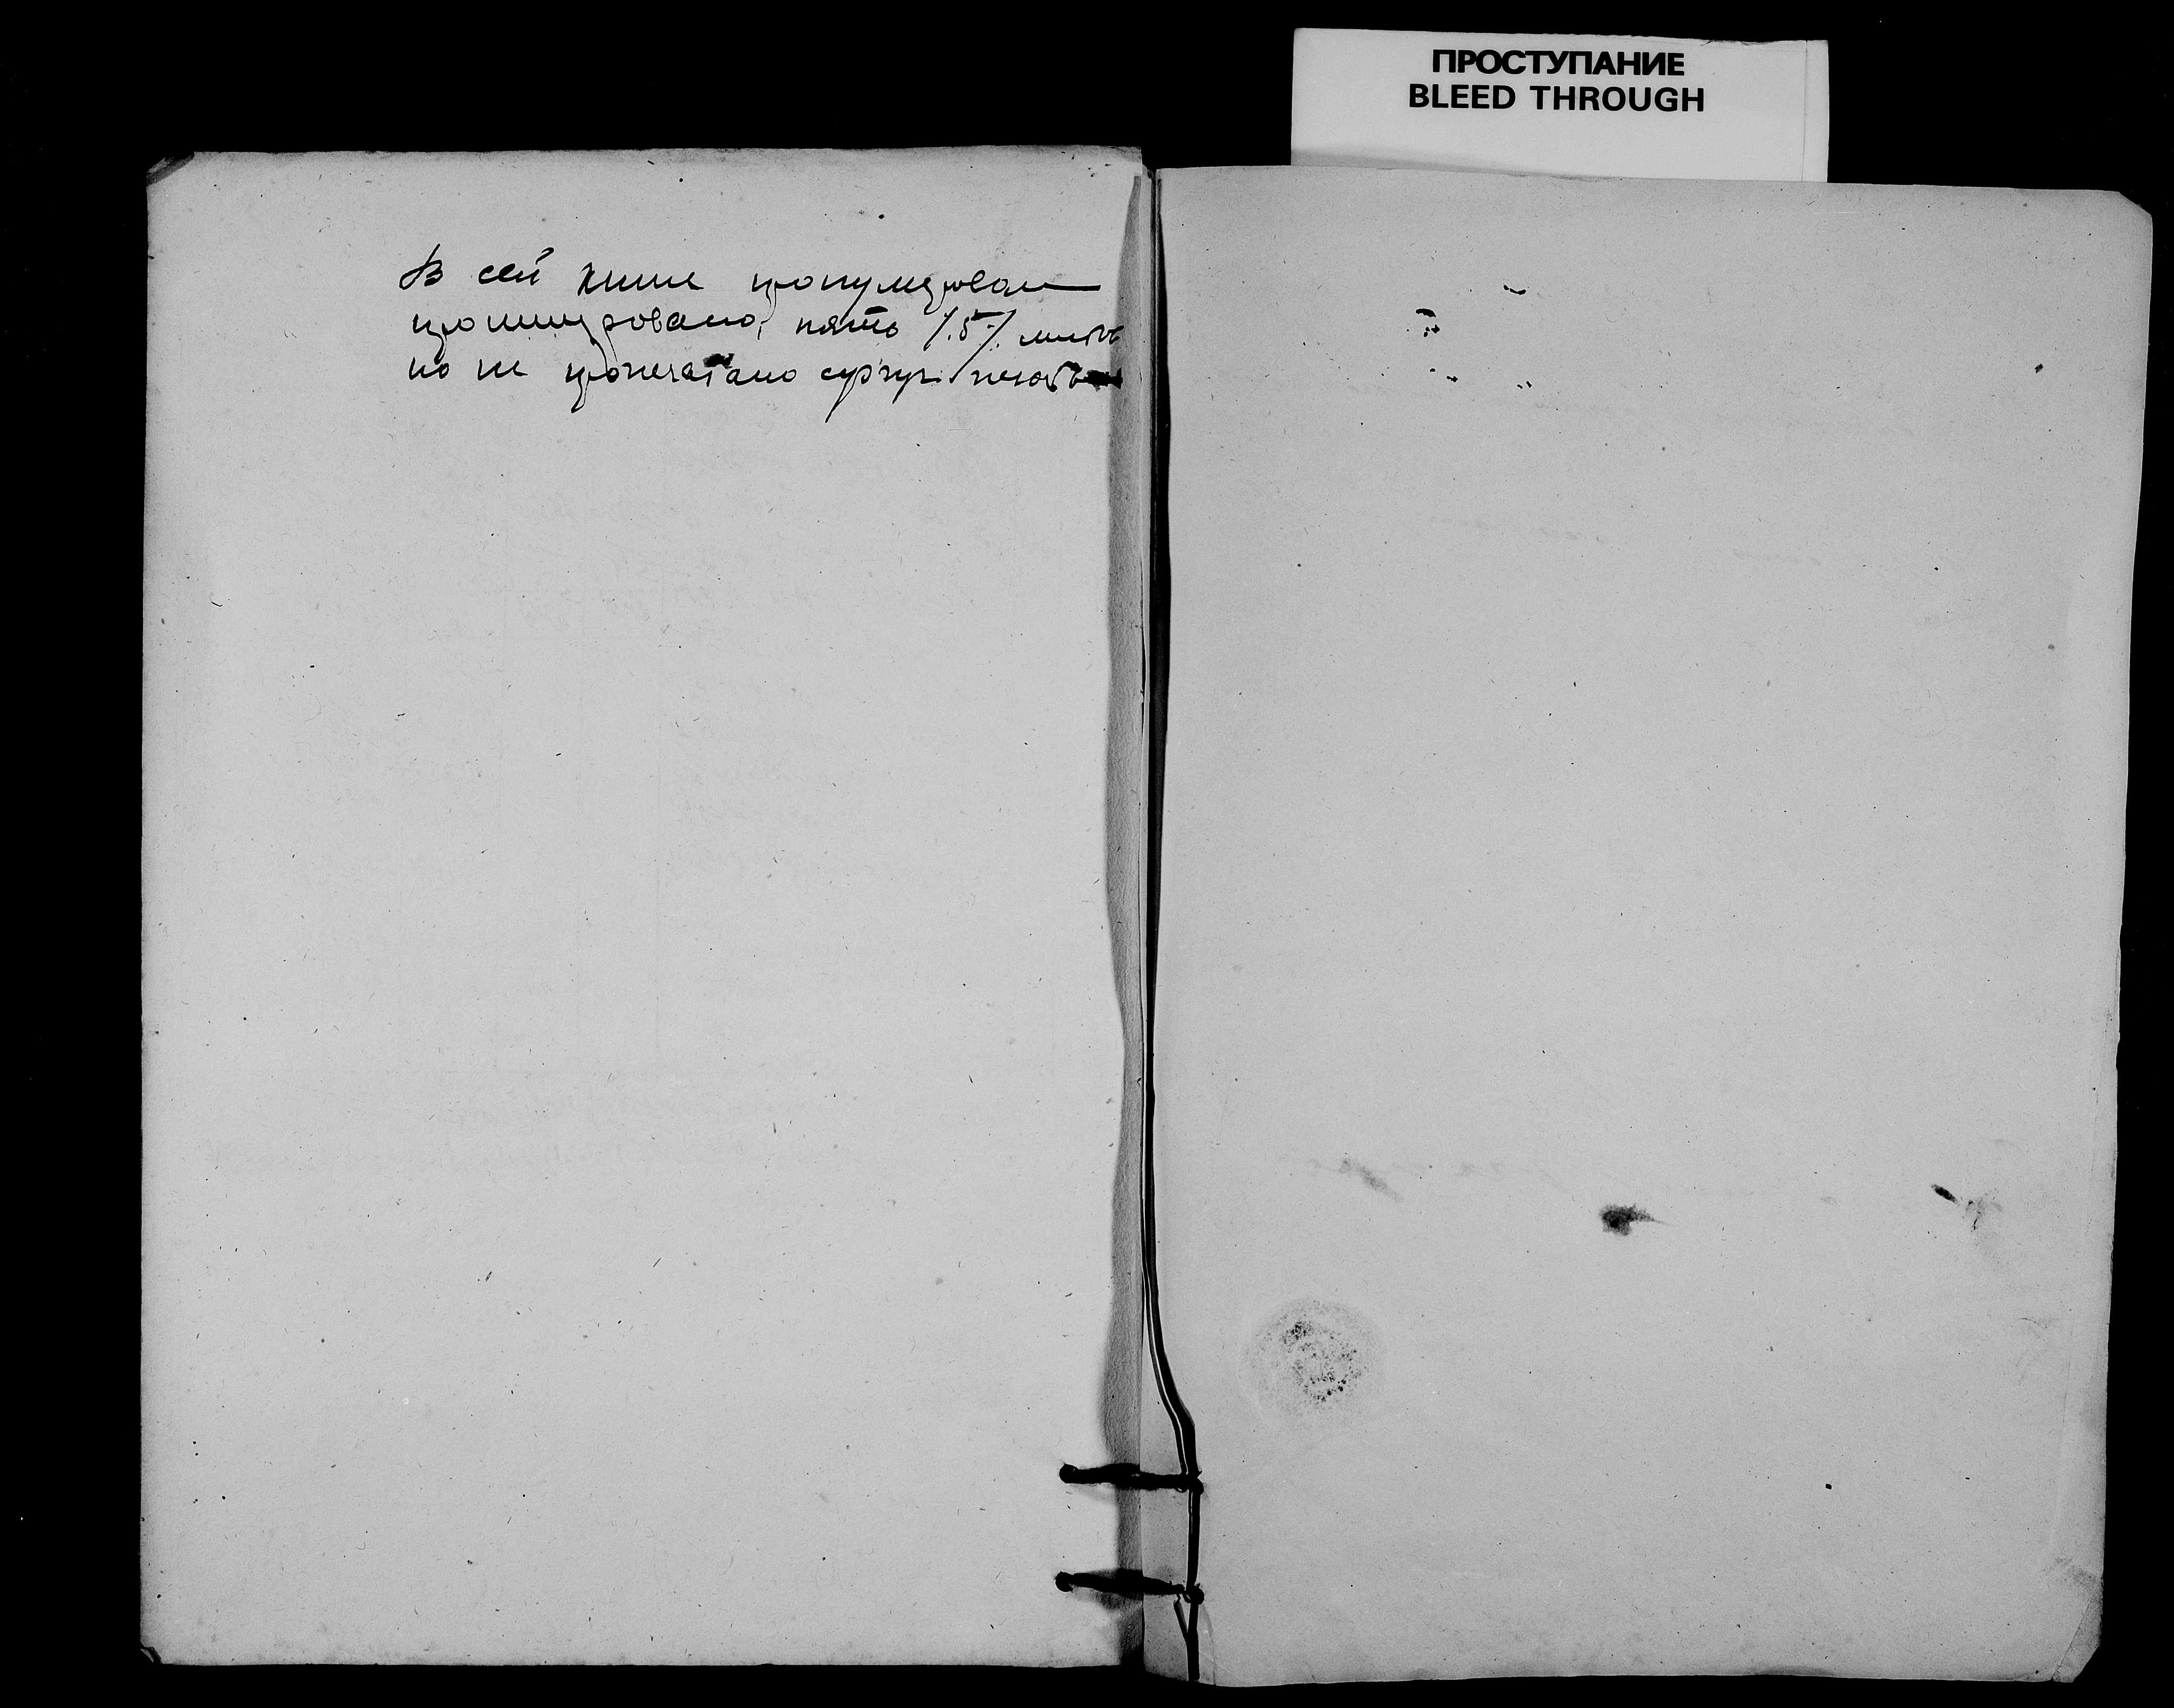 ПРОСТУПАНИЕ
BLEED THROUGH
В сей книге пронумерован
прошнуровано, пять /.5./ листов
но не пропечатано сургуч. печатью